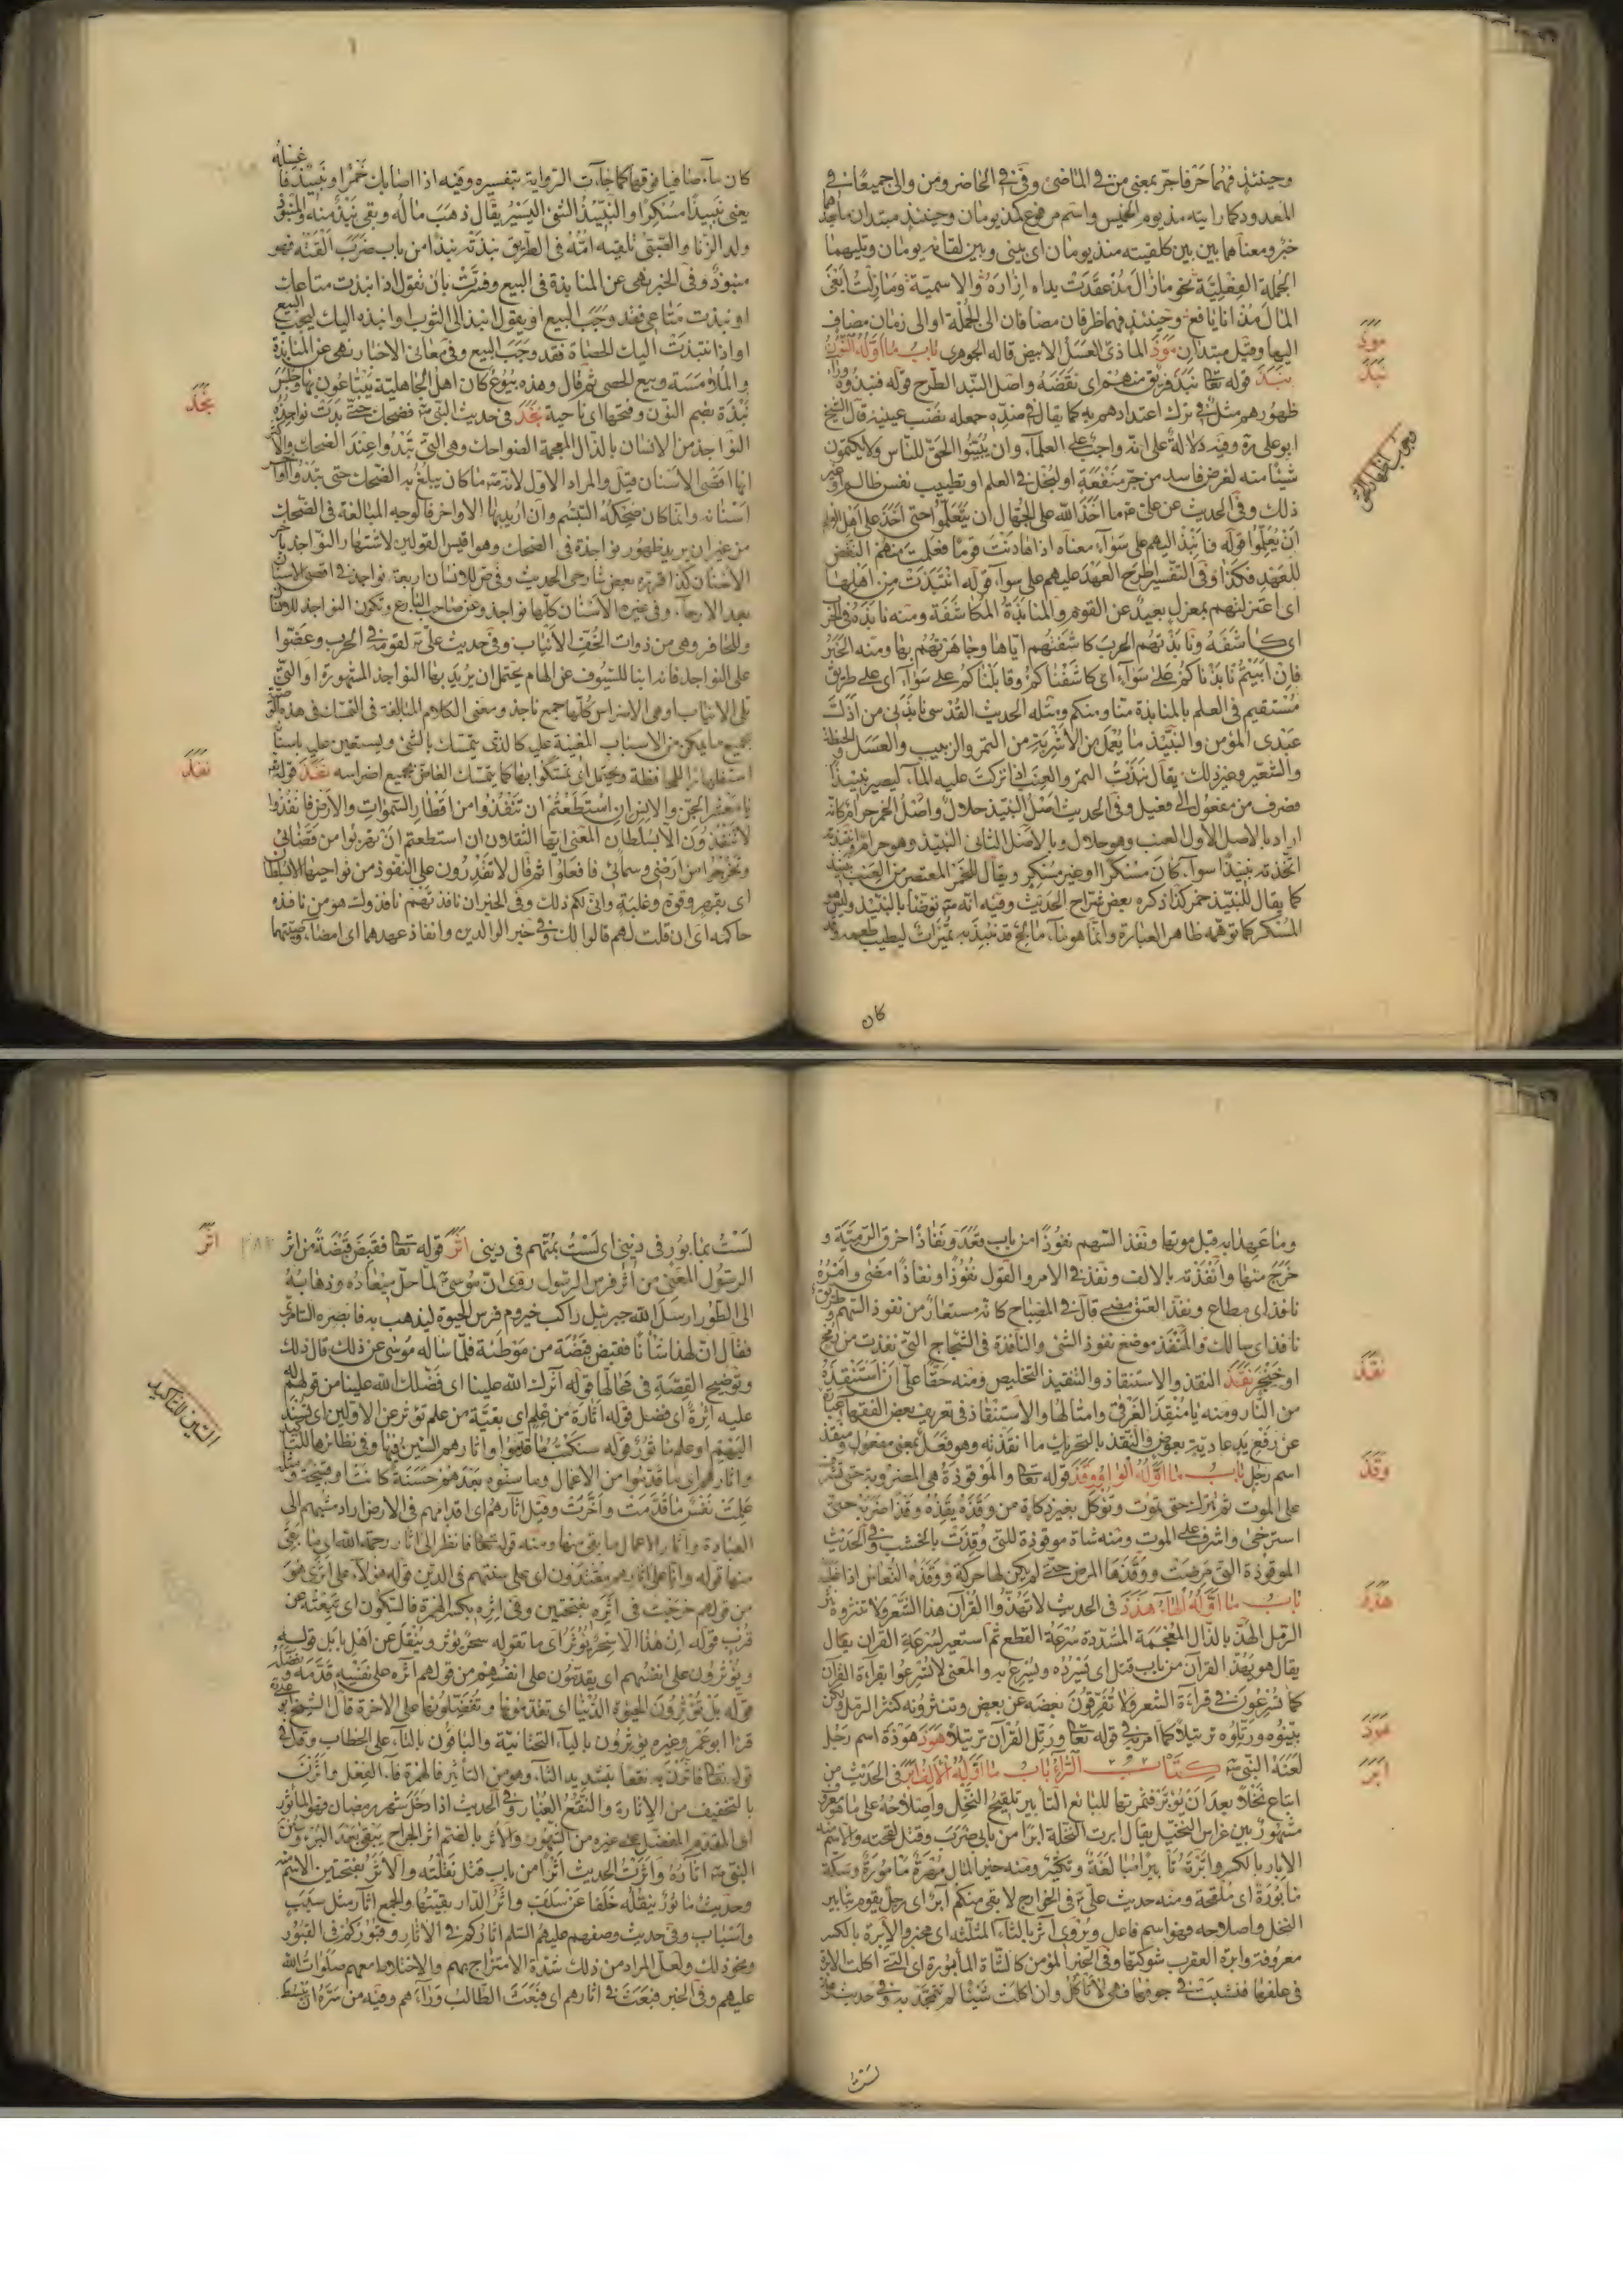 وحينئذ فهما حرفا جر بمعنى من في الماضى وفى في الحاضر ومن والى جميعا في
المعدود كما رايته مذ يوم الخميس واسم مرفوع كمذ يومان وحينئذ مبتدان ما بعدهما
خبر ومعناهما بين بين كلقيته منذ يومان اى بينى وبين لقائه يومان وتليهما
الجملة الفعلية نحو ما زال مذ عقدت يداه ازاره والاسمية وما زلت ابغى
المال مذ انا يافع وحينئذ فهما ظرفان مضافان الى الجملة او الى زمان مضاف
اليها وقيل مبتدان موذ الماذى العسل الابيض قاله الجوهرى باب ما اوله النون
نبذ قوله تعا نبذ فريق منهم اى نقضه واصل النبذ الطرح قوله فنبذوه وراء
ظهورهم مثل في ترك اعتدادهم به كما يقال في ضده جعله نصب عينيه قال الشيخ
ابو على ره وفيه دلالة على انه واجب على العلماء وان يبينوا الحق للناس ولا يكتمون
شيئا منه لغرض فاسد من جر منفعة او لبخل في العلم او تطييب نفس ظالم او غير
ذلك وفي الحديث عن على ع ما اخذ الله على الجهال ان يتعلموا حتى اخذ على اهل العلم
ان يعلموا قوله فانبذ اليهم على سواء معناه اذا هادنت قوما فعلمت منهم النقض
للعهد فكذا وفى التفسير اطرح العهد عليهم على سواء قوله انتبذت من اهلها
اى اعتزلتهم بمعزل بعيد عن القوم والمنابذة المكاشفة ومنه نابذه في الحرب
اى كاشفه ونابذتهم الحرب كاشفتهم اياها وجاهرتهم بها ومنه الخبر
فان ابيتم نابذناكم على سواء اى كاشفناكم وقابلناكم على سواء اى على طريق
مستقيم في العلم بالمنابذة منا ومنكم ومثله الحديث القدسى نابذنى من اذل
عبدى المؤمن والنبيذ ما يعمل من الاشربة من التمر والزبيب والعسل والحنطة
والشعير وغير ذلك يقال نبذت التمر والعنب اذا تركت عليه الماء ليصير نبيذا
فصرف من مفعول الى فعيل وفى الحديث اصل النبيذ حلال واصل الخمر حرام كانه
اراد بالاصل الاول العنب وهو حلال وبالاصل الثانى النبيذ وهو حرام وانتبذته
اتخذته نبيذا سواء كان مسكرا او غير مسكر ويقال للخمر المعتصر من العنب نبيذ
كما يقال للنبيذ خمر كذا ذكره بعض شراح الحديث وفيه انه ص توضأ بالنبيذ وليس هو
المسكر كما توهمه ظاهر العبارة وانما هو ماء مالح قد نبذ به تميرات ليطيب طعمه وقد
كان
موذ
نبذ
كان ماء صافيا فوقها كما جاءت الرواية بتفسيره وفيه اذا اصابك خمر او نبيذ فاغسله
يعنى نبيذا مسكرا والنبيذ الشئ اليسير يقال ذهب ماله وبقى نبذ منه والمنبوذ
ولد الزنا والصبى تلقيه امه في الطريق نبذته نبذا من باب ضرب القيته فهو
منبوذ وفى الخبر نهى عن المنابذة في البيع وفسرت بان تقول اذا نبذت متاعك
او نبذت متاعى فقد وجب البيع او يقول انبذ الى الثوب او انبذه اليك ليجب البيع
او اذا نبذت اليك الحصاة فقد وجب البيع وفى معانى الاخبار نهى عن المنابذة
والملامسة وبيع الحصى ثم قال وهذه بيوع كان اهل الجاهلية يتبايعون بها وجلس
نبذة بضم النون وفتحها اى ناحية نجذ في حديث النبى ص فضحك حتى بدت نواجذه
النواجذ من الاسنان بالذال المعجمة الضواحك وهى التى تبدو عند الضحك والاكثر
انها اقصى الاسنان قيل والمراد الاول لانه ص ما كان يبلغ به الضحك حتى تبدو اواخر
اسنانه وانما كان ضحكه التبسم وان اريد بها الاواخر فالوجه المبالغة في الضحك
من غير ان يريد ظهور نواجذه في الضحك وهو اقيس القولين لاشتهار النواجذ باخر
الاسنان كذا قرره بعض شارحى الحديث وفى ص للانسان اربعة نواجذ في اقصى الاسنان
بعد الارحاء وفى غيره الاسنان كلها نواجذ وعن صاحب البارع وتكون النواجذ للانسان
وللحافر وهى من ذوات الخف الانياب وفى حديث على ع لقومه في الحرب وعضوا
على النواجذ فانه انبا للسيوف عن الهام يحتمل ان يريد بها النواجذ المشهورة او التى
تلى الانياب او هى الاضراس كلها جمع ناجذ ومعنى الكلام المبالغة في التمسك في هذه الوصية
بجميع ما يمكن من الاسباب المعينة عليه كالذى يتمسك بالشئ ويستعين عليه باسنانه
استظهارا للمحافظة ويحتمل اى تمسكوا بها كما يتمسك العاض بجميع اضراسه نفذ قوله تعا
يا معشر الجن والانس ان استطعتم ان تنفذوا من اقطار السموات والارض فانفذوا
لا تنفذون الا بسلطان المعنى ايها الثقلان ان استطعتم ان تهربوا من قضائى
وتخرجوا من ارضى وسمائى فافعلوا ثم قال لا تقدرون على النفوذ من نواحيها الا بسلطان
اى بقهر وقوة وغلبة وانى لكم ذلك وفى الخبر ان نافذتهم نافذوك هو من نافذه
حاكمه اى ان قلت لهم قالوا لك وفى خبر الوالدين وانفاذ عهدهما اى امضاء وصيتهما
نجذ
نفذ
وما عهدا به قبل موتها ونفذ السهم نفوذا من باب قعد ونفاذا خرق الرمية و
خرج منها وانفذته بالالف ونفذ في الامر والقول نفوذا ونفاذا مضى وامره
نافذ اى مطاع ونفذ العتق مضى قال في المصباح كانه مستعار من نفوذ السهم وطريق
نافذ اى سالك والمنفذ موضع نفوذ الشئ والنافذة في الشجاج التى نفذت من رمح
او خنجر نقذ النقذ والاستنقاذ والتنقيذ التخليص ومنه حقا على ان استنقذه
من النار ومنه يا منقذ الغرقى وامثالها والاستنقاذ في تعريف بعض الفقهاء عبارة
عن رفع يد عادية بعوض والنقذ بالتحريك ما انقذته وهو فعل بمعنى مفعول ومنقذ
اسم رجل باب ما اوله الواو وقذ قوله تعا والموقوذة هى المضروبة حتى تشرف
على الموت ثم تترك حتى تموت وتؤكل بغير ذكاة من وقذه يقذه وقذا ضربه حتى
استرخى واشرف على الموت ومنه شاة موقوذة للتى وقذت بالخشب وفى الحديث
الموقوذة التى مرضت ووقذها المرض حتى لم يكن لها حركة ووقذه النعاس اذا غلبه
باب ما اوله الهاء هذذ في الحديث لا تهذوا القرآن هذا الشعر ولا تنثروه نثر
الرمل الهذ بالذال المعجمة المشددة سرعة القطع ثم استعير لسرعة القران يقال
يقال هو يهذ القرآن من باب قتل اى يسرده ويسرع به والمعنى لا تسرعوا بقراءة القرآن
كما تسرعون في قراءة الشعر ولا تفرقون بعضه عن بعض وتنثرونه كنثر الرمل ولكن
بينوه ورتلوه ترتيلا كما امر في قوله تعا ورتل القرآن ترتيلا هوذ هوذة اسم رجل
لعنه النبى ص كتاب الراء باب ما اوله الالف ابر في الحديث من
ابتاع نخلا بعد ان يؤبر فثمرتها للبائع التأبير تلقيح النخل واصلاحه على ما هو معروف
مشهور بين غراس النخيل يقال ابرت النخلة ابرا من بابى ضرب وقتل لقحته والاسم منه
الابار بالكسر وابرته تأبيرا مبالغة وتكثير ومنه خير المال مهرة مامورة وسكة
مأبورة اى ملقحة ومنه حديث على ع في الخوارج لا بقى منكم آبر اى رجل يقوم بتابير
النخل واصلاحه فهو اسم فاعل ويروى آثر بالثاء المثلثه اى مخبر والابرة بالكسر
معروفة وابرة العقرب شوكتها وفى الخبر المؤمن كالشاة المأبورة اى التى اكلت الابرة
في علفها فنشبت في جوفها فهى لا تاكل وان اكلت شيئا لم ينجع به وفى حديث
لست
نقذ
وقذ
هذذ
هوذ
ابر
لست بمابور في دينى اى لست بمتهم في دينى اثر قوله تعا فقبضت قبضة من اثر
الرسول المعنى من اثر فرس الرسول روى ان موسى ع لما حل ميعاده وذهابه
الى الطور ارسل الله جبرئيل راكب حيزوم فرس الحيوة ليذهب به فابصره السامرى
فقال ان لهذا شأنا فقبض قبضة من موطئه فلما ساله موسى عن ذلك قال ذلك
وتوضيح القصة في محالها قوله آثرك الله علينا اى فضلك الله علينا من قولهم له
عليه اثرة اى فضل قوله اثارة من علم اى بقية من علم تؤثر عن الاولين اى تسند
اليهم او علم مأثور قوله سنكتب ما قدموا واثارهم السين فيها وفى نظائرها للتاكيد
واثارهم اى ما قدموا من الاعمال وما سنوه بعدهم حسنة كانت او قبيحة ومثله
علمت نفس ما قدمت واخرت وقيل اثارهم اى اقدامهم في الارض اراد مشيهم الى
العبادة واثار الاعمال ما بقى منها ومنه قوله تعا فانظر الى آثار رحمة الله اى ما بقى
منها قوله وانا على اثارهم مقتدون اى على سنتهم في الدين قوله هم اولاء على اثرى هو
من قولهم خرجت في اثره بفتحتين وفى اثره بكسر الهمزة فالسكون اى تبعته عن
قرب قوله ان هذا الا سحر يؤثر اى ما تقوله سحر يؤثر وينقل عن اهل بابل قوله
ويؤثرون على انفسهم اى يقدمون على انفسهم من قولهم آثره على نفسه قدمه وفضله
قوله بل تؤثرون الحيوة الدنيا اى تقدمونها وتفضلونها على الاخرة قال الشيخ ابو على
قرا ابو عمرو وغيره يؤثرون بالياء التحتانية والباقون بالتاء على الخطاب وقد قرئ
قوله تعا فاثرن به نقعا بتشديد الثاء وهو من التأثير فالهمزة فاء الفعل واثرن
بالتخفيف من الاثارة والنقع الغبار وفى الحديث اذا دخل شهر رمضان فهو الماثور
اى المقدم المفضل على غيره من الشهور والاثر بالضم اثر الجراح يبقى بعد البرء وسنن
النبى ص اثاره واثرت الحديث اثرا من باب قتل نقلته والاثر بفتحتين الاسم منه
وحديث مأثور ينقله خلفا عن سلف واثر الدار بقيتها والجمع اثار مثل سبب
واسباب وفى حديث وصفهم عليهم السلم اثاركم في الاثار وقبوركم في القبور
ونحو ذلك ولعل المراد من ذلك شدة الامتزاج بهم والاختلاط معهم صلوات الله
عليهم وفى الخبر فبعث في اثارهم اى فبعث الطالب وراءهم وفيه من سره ان يبسط
اثر
السين للتاكيد